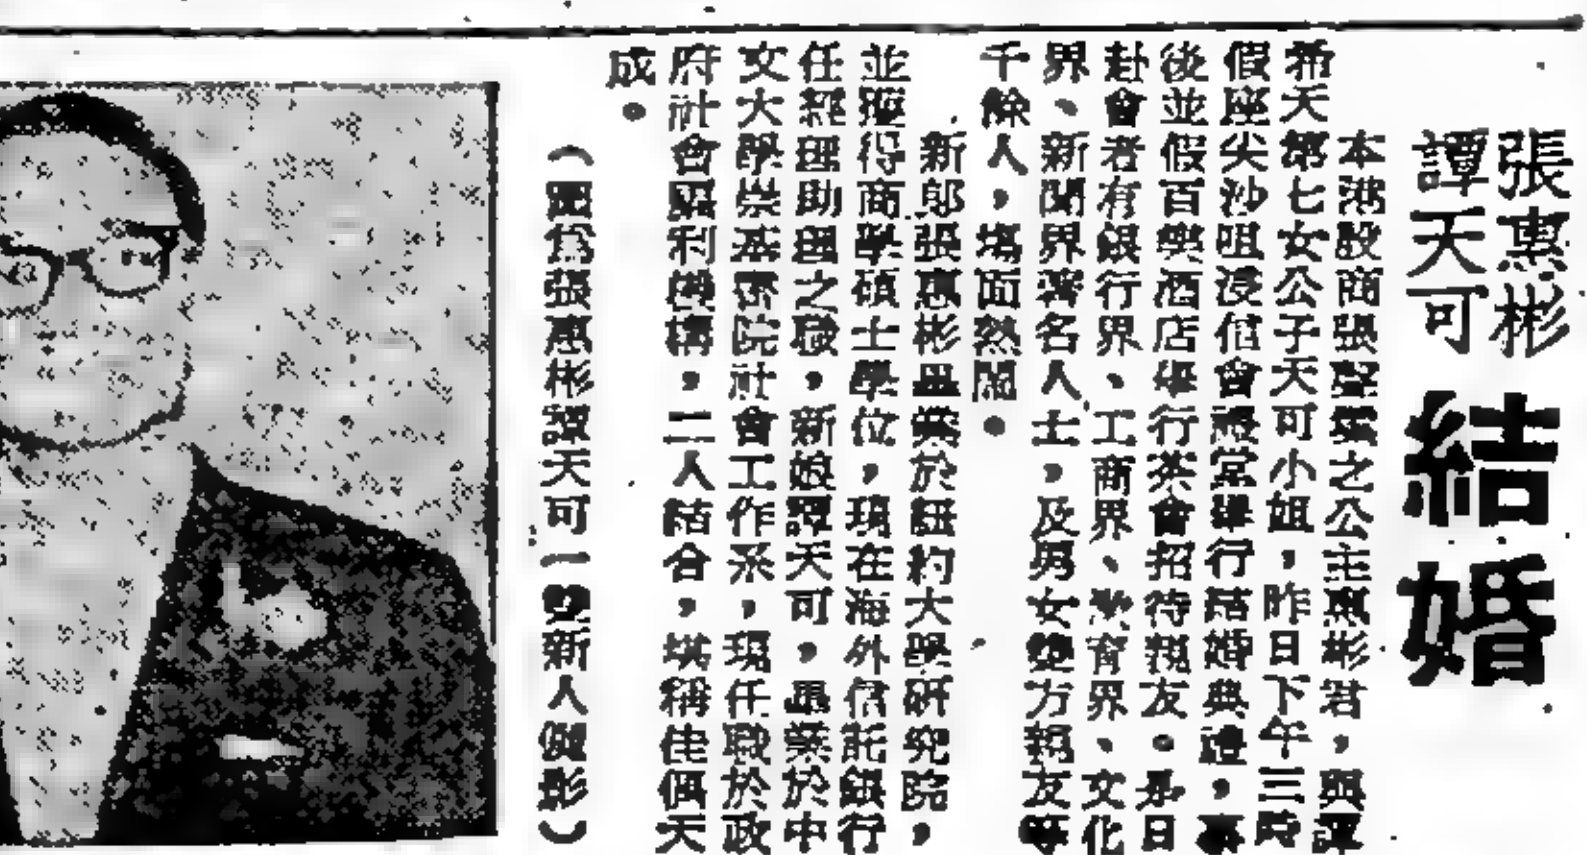 張惠彬
譚天可
結婚
本港殷商張之公主惠彬君，與譚
希天第七女公子天可小姐，昨日下午三時
假座尖沙咀浸信會禮堂舉行結婚典禮，事
後並假百樂酒店舉行茶會招待親友。是日
赴會者有銀行界、工商界、教育界、文化
界、新聞界著名人士，及男女雙方親友等
千餘人，塲面熱閙。
新郎張惠彬畢業於紐約大學研究院，
並獲得商學碩士學位，現在海外信託銀行
任經理助理之職，新娘譚天可，畢業於中
文大學崇基學院社會工作系，現任職於政
府社會福利機構，二人結合，堪稱佳偶天
成。
（圖爲張惠彬譚天可一雙新人儷影）